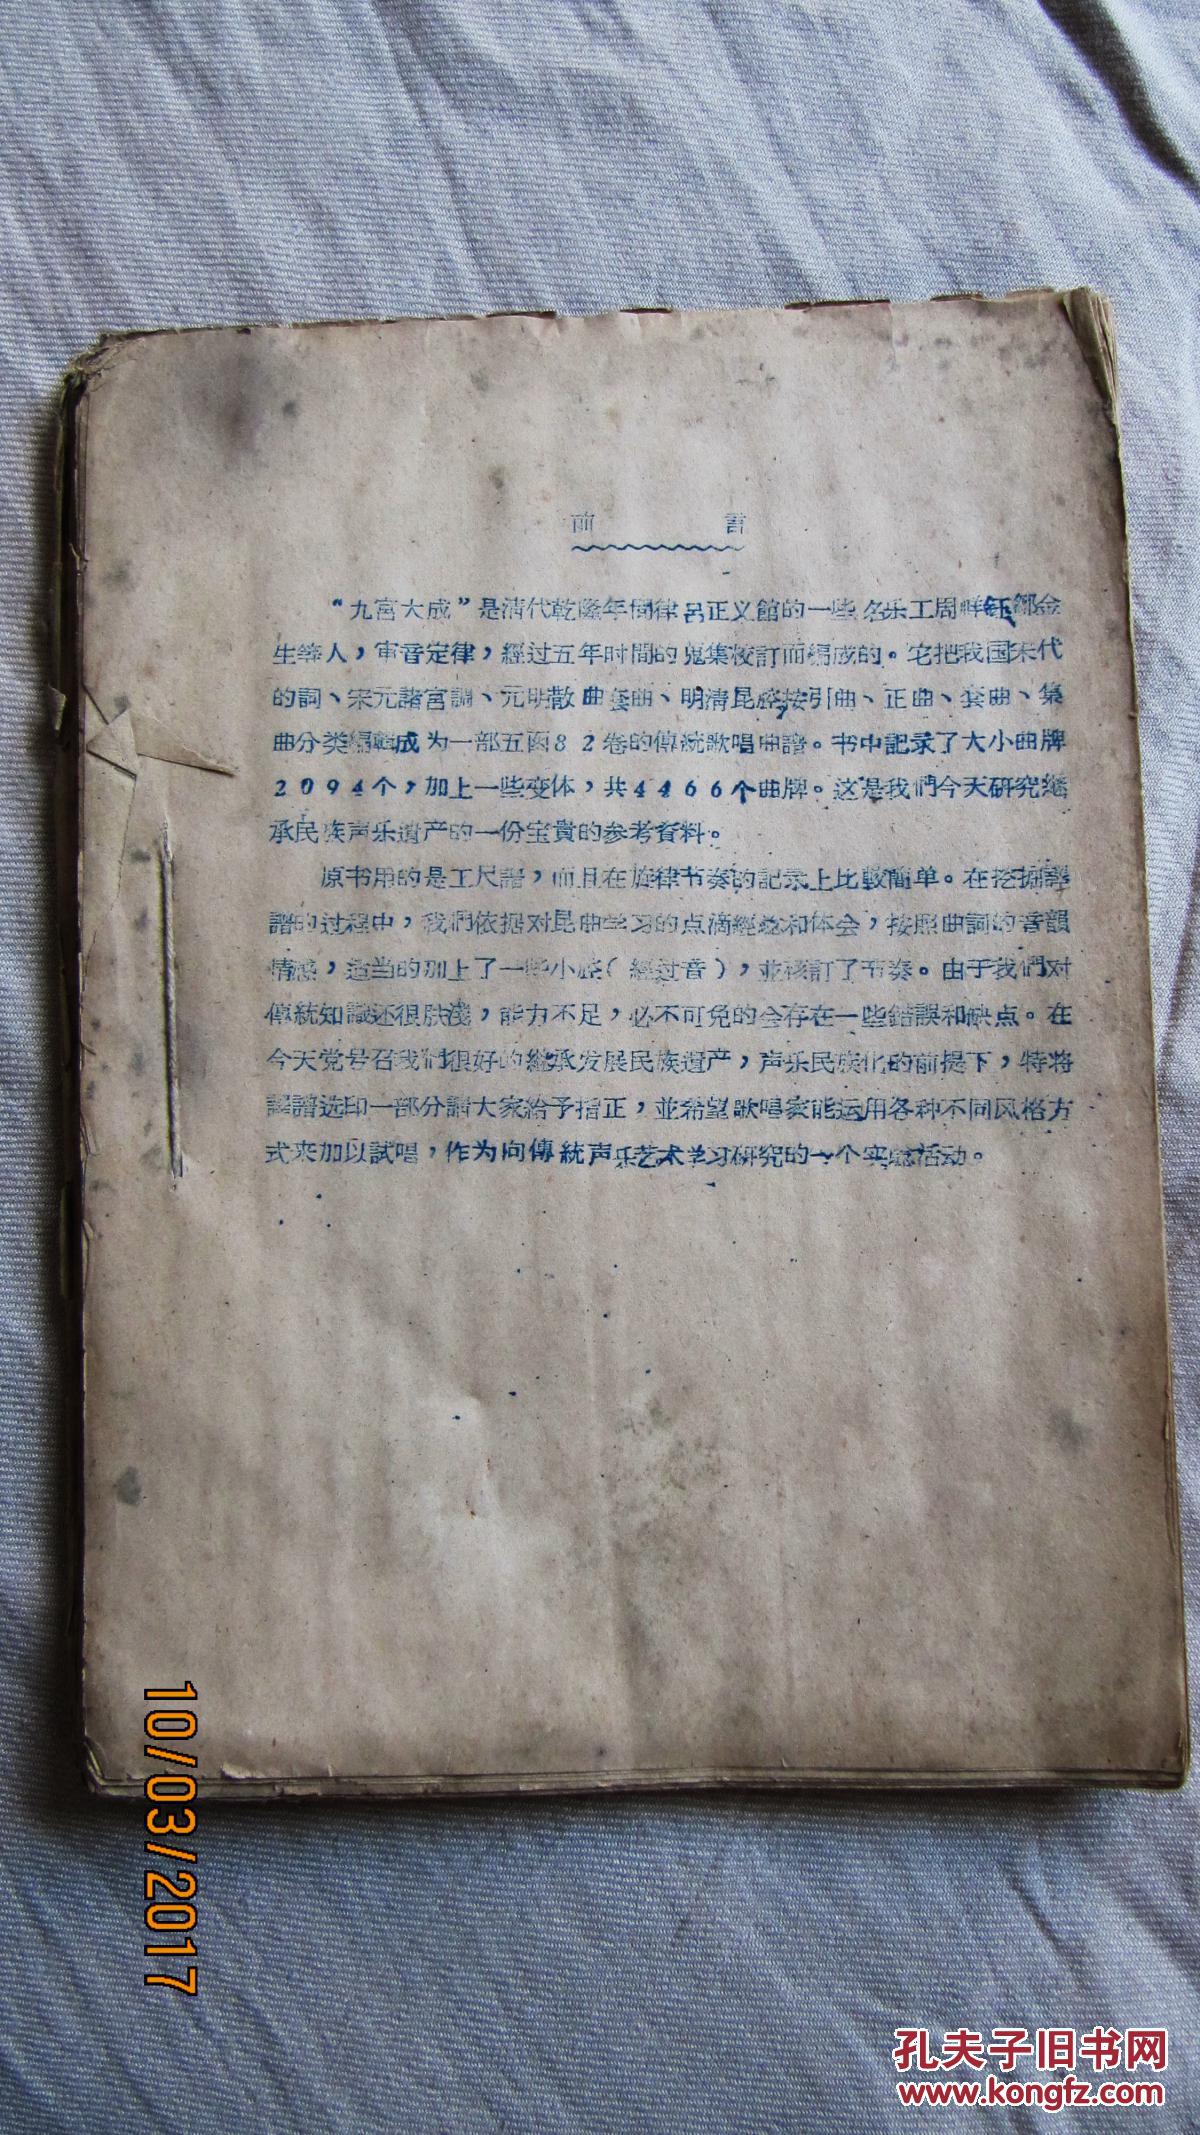 前言
“九宮大成”是清代乾隆年間律呂正义館的一些名乐工周祥鈺鄒金
生等人，审音定律，經过五年时間的蒐集校訂而編成的。它把我国宋代
的詞、宋元諸宮調、元明散曲套曲、明清昆腔按引曲、正曲、套曲、集
曲分类編輯成为一部五函82卷的傳統歌唱曲譜。书中記录了大小曲牌
2094个，加上一些变体，共4466个曲牌。这是我們今天研究継
承民族声乐遺产的一份宝貴的参考資料。
原书用的是工尺譜，而且在旋律节奏的記录上比較簡单。在挖掘譯
譜的过程中，我們依据对昆曲学习的点滴經验和体会，按照曲詞的音韻
情感，适当的加上了一些小腔（經过音），並核訂了节奏。由于我們对
傳統知識还很肤淺，能力不足，必不可免的会存在一些錯誤和缺点。在
今天党号召我們很好的継承发展民族遺产，声乐民族化的前提下，特将
譯譜选印一部分請大家給予指正，並希望歌唱家能运用各种不同风格方
式来加以試唱，作为向傳統声乐艺术学习研究的一个实驗活动。
10/03/2017
孔夫子旧书网
www.kongfz.com